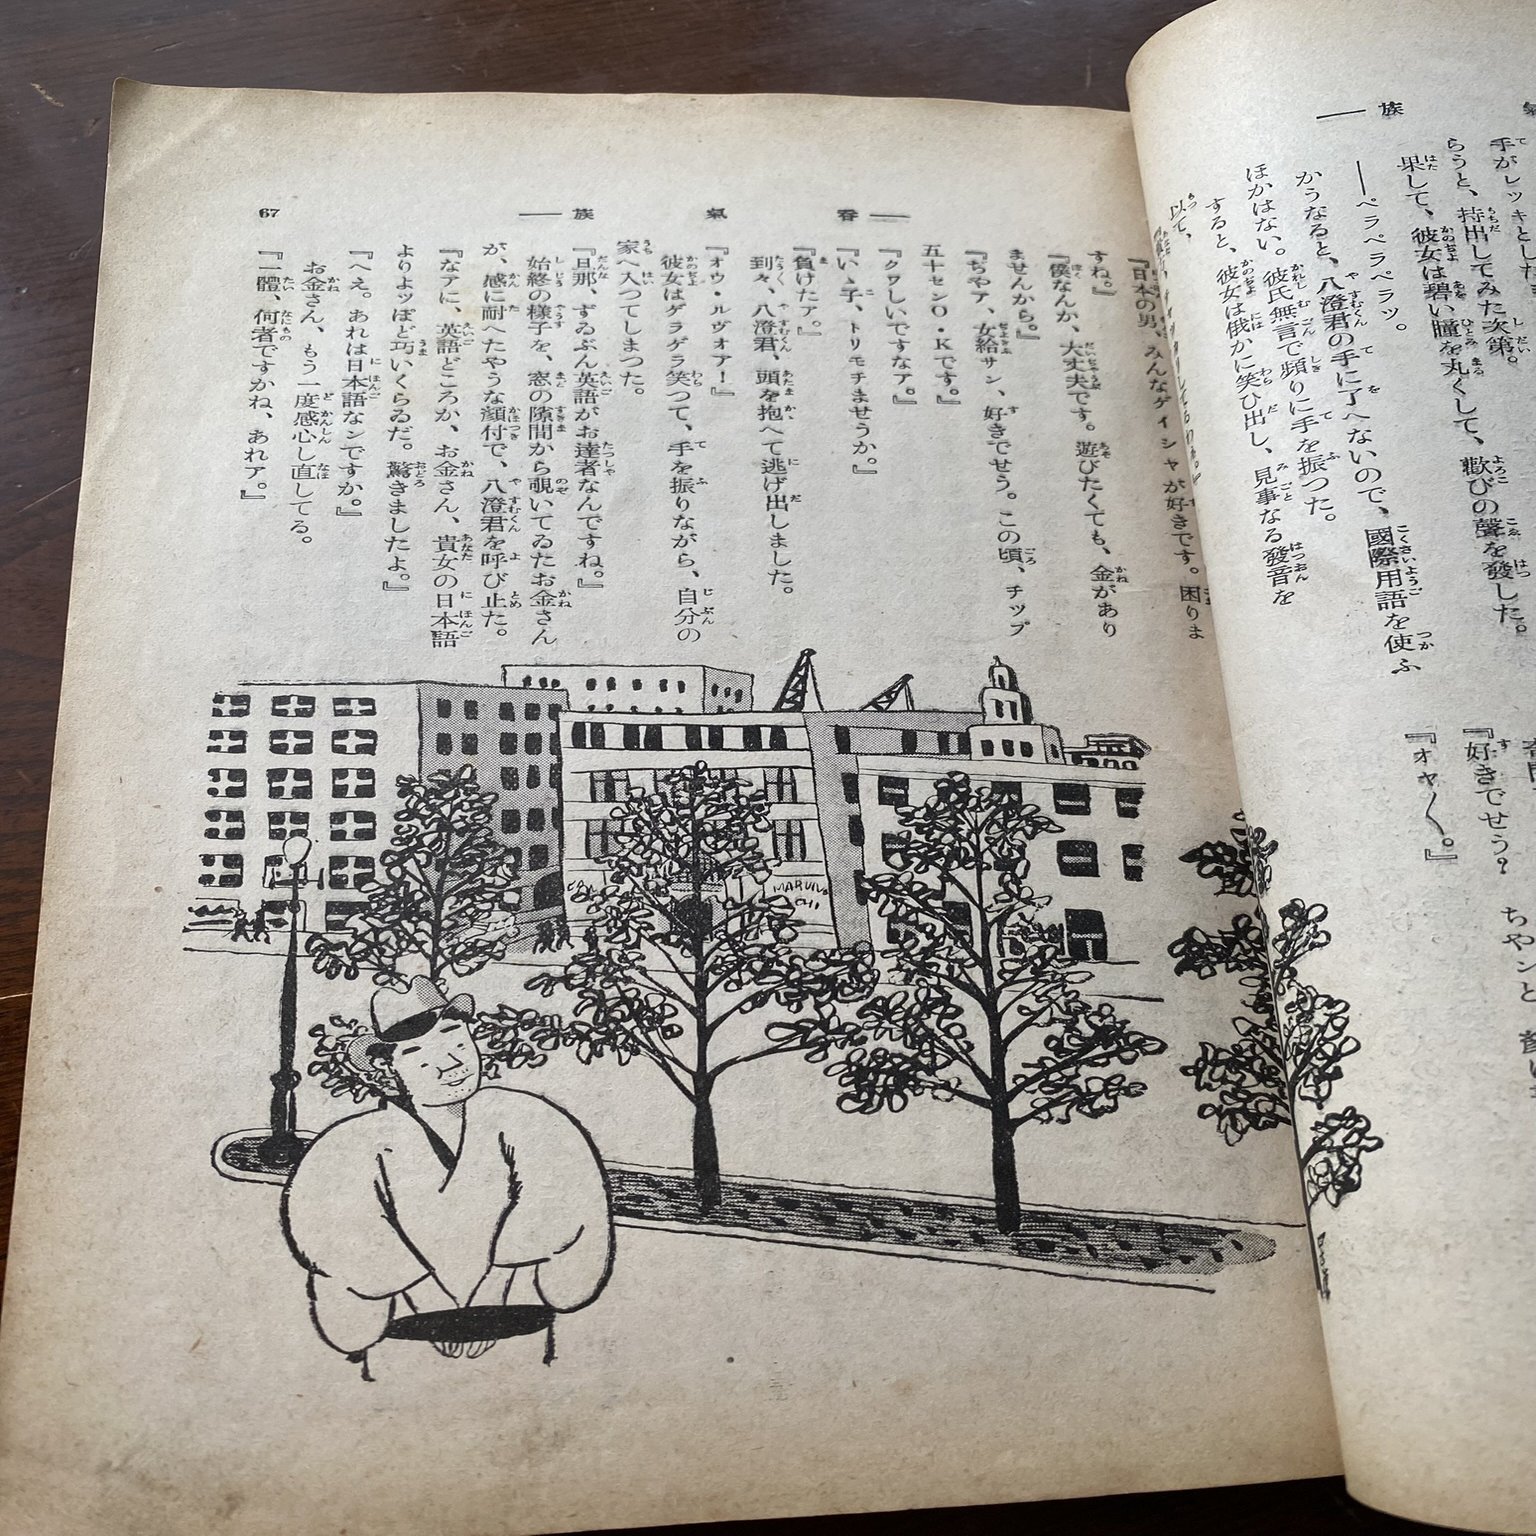 氣　族――
手がレッキとした
らうと、持出してみた次第。
果して、彼女は碧い瞳を丸くして、歡びの聲を發した。
――ペラペラペラッ。
かうなると、八澄君の手に了へないので、國際用語を使ふ
ほかはない。彼氏無言で頻りに手を振つた。
すると、彼女は俄かに笑ひ出し、見事なる發音を
以て、
『好きでせう？　ちやンと
『オヤ〱。』
――春　氣　族――
67
『日本の男、みんなゲイシャが好きです。困りま
すね。』
『僕なんか、大丈夫です。遊びたくても、金があり
ませんから。』
『ちやア、女給サン、好きでせう。この頃、チップ
五十センＯ・Ｋです。』
『クワしいですなア。』
『いゝ子、トリモチませうか。』
『負けたア。』
到々、八澄君、頭を抱へて逃げ出しました。
『オウ・ルヴォア！』
彼女はゲラゲラ笑つて、手を振りながら、自分の
家へ入つてしまつた。
『旦那、ずゐぶん英語がお達者なんですね。』
始終の様子を、窓の隙間から覗いてゐたお金さん
が、感に耐へたやうな顔付で、八澄君を呼び止めた。
『なアに、英語どころか、お金さん、貴女の日本語
よりよッぽど巧いくらゐだ。驚きましたよ。』
『へえ。あれは日本語なンですか。』
お金さん、もう一度感心し直してる。
『一體、何者ですかね、あれア。』
MARUNO
CHI